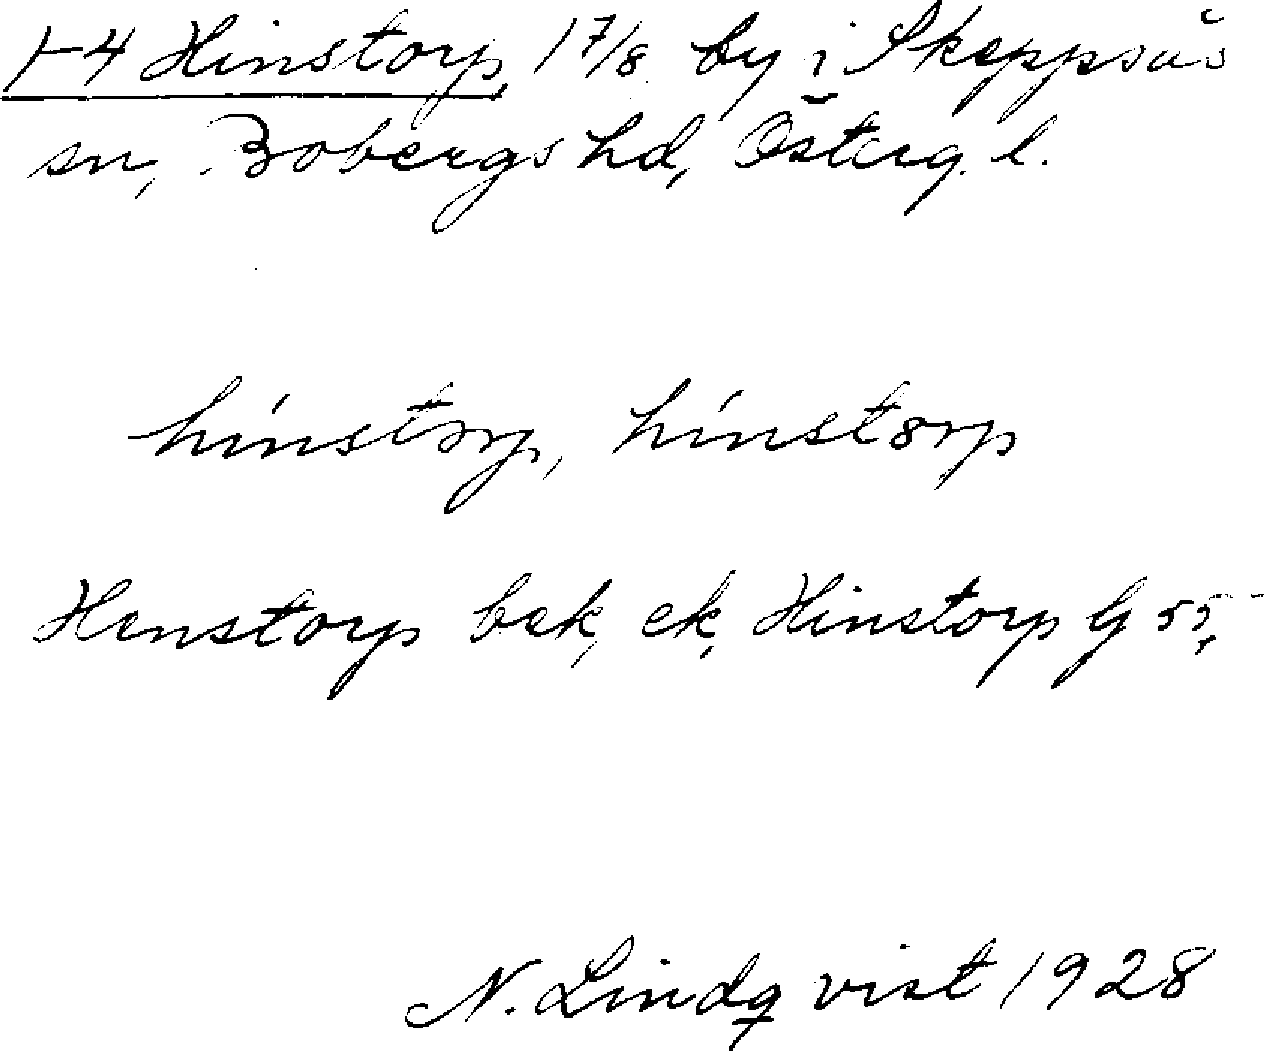 1-4 Hinstorp, 17/8 by i Skeppsås
sn, Bobergs hd, Österg. l.
hinstorp, hinstørp
Henstorp bek, ek, Hinstorp G 55,
N. Lindqvist 1928